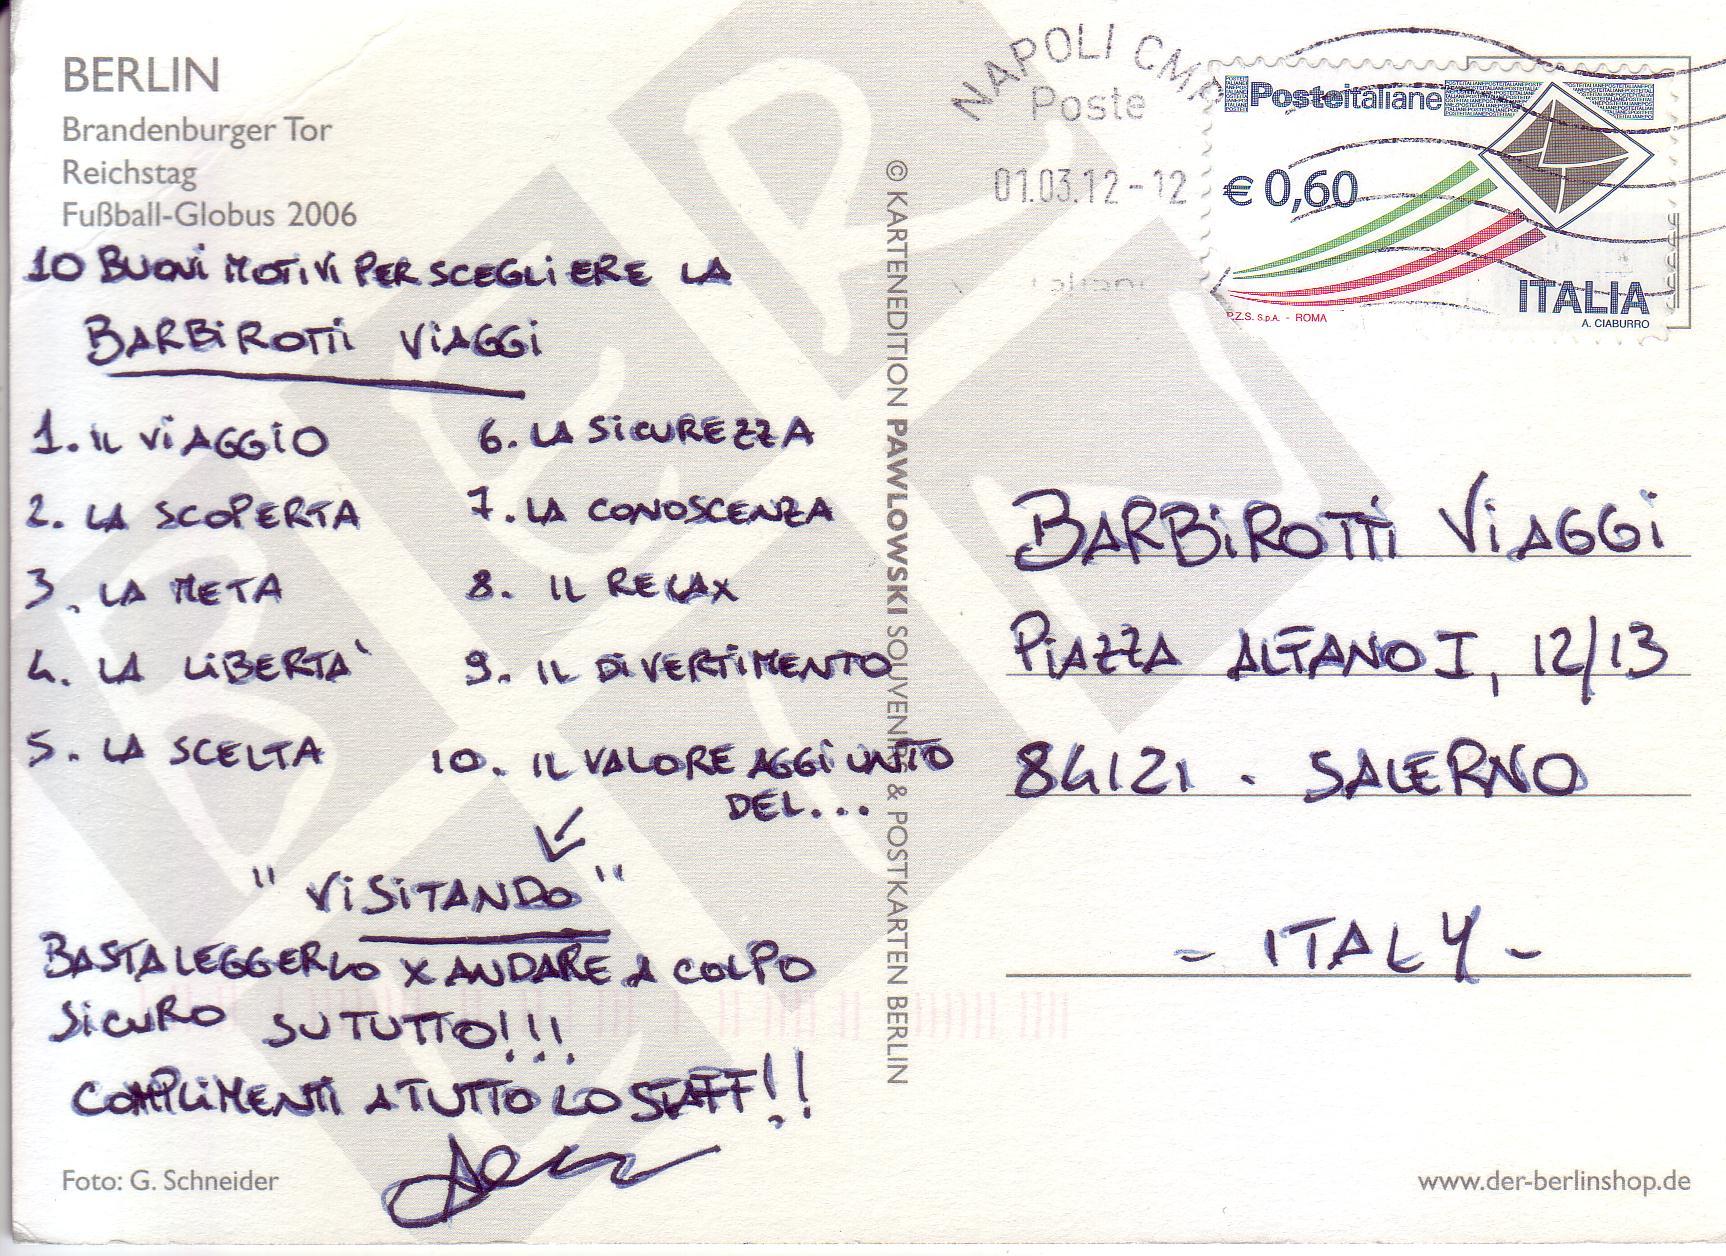 BERLIN
Brandenburger Tor
Reichstag
Fußball-Globus 2006
10 BUONI MOTIVI PER SCEGLIERE LA
BARBIROTTI VIAGGI
1. IL VIAGGIO
2. LA SCOPERTA
3. LA META
4. LA LIBERTA'
5. LA SCELTA
6. LA SICUREZZA
7. LA CONOSCENZA
8. IL RELAX
9. IL DIVERTIMENTO
10. IL VALORE AGGIUNTO
DEL...
"VISITANDO"
BASTA LEGGERLO X ANDARE A COLPO
SICURO SU TUTTO!!!
COMPLIMENTI A TUTTO LO STAFF!!
Foto: G. Schneider
© KARTENEDITION PAWLOWSKI SOUVENIRS & POSTKARTEN BERLIN
NAPOLI CMP
Poste
01.03.12-12
italiane
Posteitaliane
€ 0,60
ITALIA
P.Z.S. S.p.A. - ROMA
A. CIABURRO
BARBIROTTI VIAGGI
PIAZZA ALFANO I, 12/13
84121 - SALERNO
- ITALY -
www.der-berlinshop.de